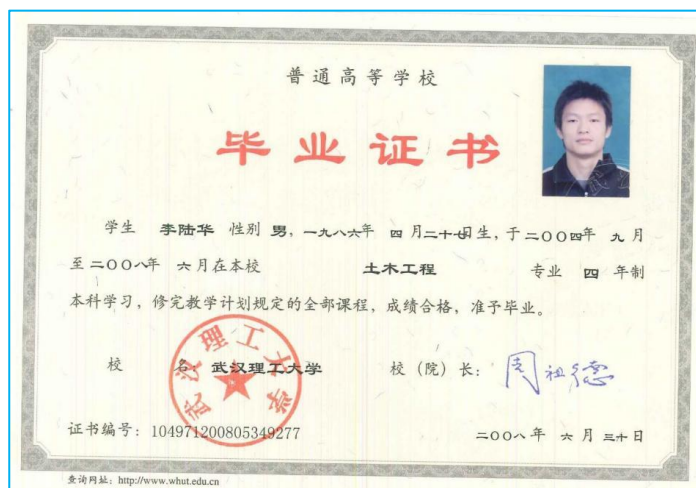 普通高等学校
毕业证书
学生 李陆华 性别 男，一九八六年 四 月二十七日生，于二〇〇四年 九 月
至二〇〇八年 六 月在本校 土木工程 专业 四 年制
本科学习，修完教学计划规定的全部课程，成绩合格，准予毕业。
校 名：武汉理工大学 校（院）长：周祖德
武汉理工大学
证书编号：104971200805349277 二〇〇八年 六 月 三十 日
查询网址：http://www.whut.edu.cn